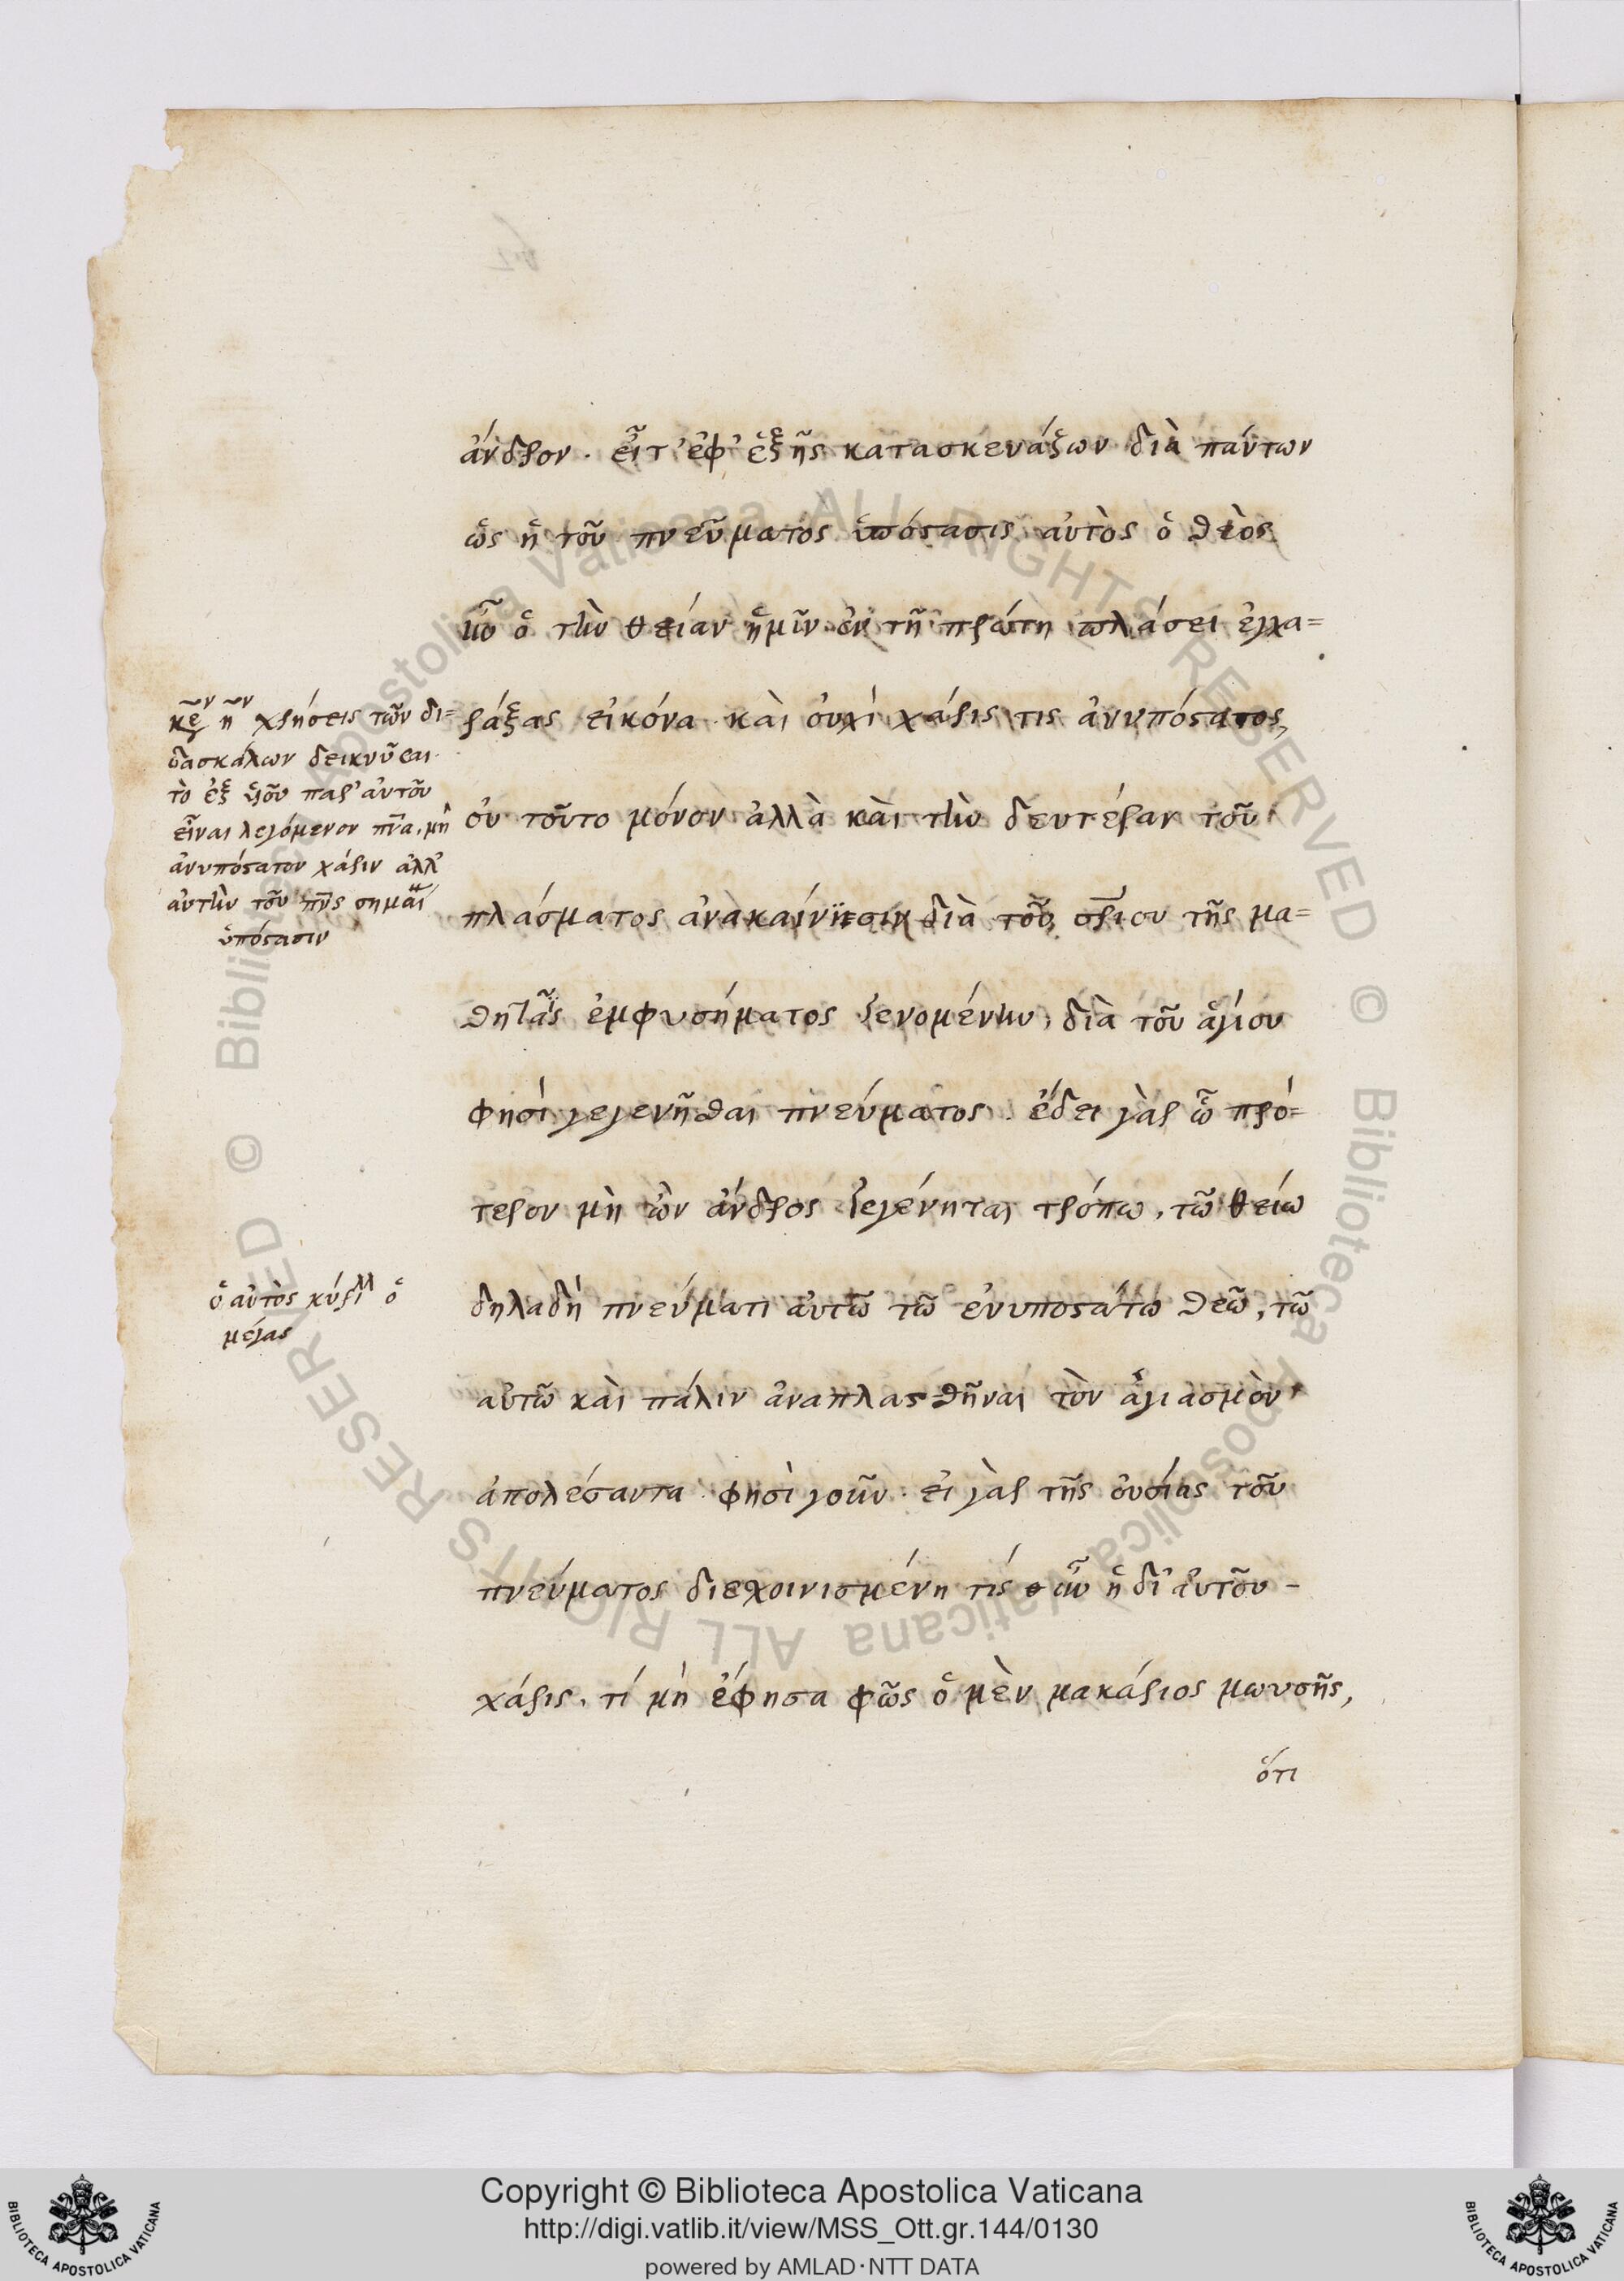 ἄνδρον. εἶτ' ἐφ' ἑξῆς κατασκευάζων διὰ πάντων
ὡς ἡ τοῦ πνεύματος ὑπόστασις αὐτὸς ὁ θεὸς
ἦν ὁ τὴν θείαν ἡμῖν ἐν τῇ πρώτῃ πλάσει ἐγχα=
ράξας εἰκόνα. καὶ οὐχὶ χάρις τις ἀνυπόστατος,
οὐ τοῦτο μόνον ἀλλὰ καὶ τὴν δευτέραν τοῦ
πλάσματος ἀνακαίνισιν διὰ τοῦ τῆς μα=
θητὰς ἐμφυσήματος γενομένην, διὰ τοῦ ἁγίου
φησί γεγενῆσθαι πνεύματος. ἔδει γὰρ ᾧ πρό=
τερον μὴ ὢν ἄνδρος γεγένηται τρόπω, τῶ θείω
δηλαδὴ πνεύματι αὐτῶ τῶ ἐνυποστάτω θεῶ, τῶ
αὐτῶ καὶ πάλιν ἀναπλασθῆναι τὸν ἁγιασμὸν
ἀπολέσαντα. φησὶ γοῦν. εἰ γὰρ τῆς οὐσίας τοῦ
πνεύματος διεσχοινισμένη τίς ἦν ἡ δι' αὐτοῦ -
χάρις, τί μὴ ἔφησα φῶς ὁ μὲν μακάριος μωυσῆς,
ὅτι
χρήσεις τῶν δι=
δασκάλων δεικνῦσαι
τὸ ἐξ υἱοῦ παρ' αὐτοῦ
εἶναι λεγόμενον πνα, μὴ
ἀνυπόστατον χάριν ἀλλ'
αὐτὴν τοῦ πνς σημαί
ὑπόστασιν
ὁ αὐτὸς κύριλλ ὁ
μέγας
Biblioteca Apostolica Vaticana ALL RIGHTS RESERVED ©
Biblioteca Apostolica Vaticana ALL RIGHTS RESERVED ©
Copyright © Biblioteca Apostolica Vaticana
http://digi.vatlib.it/view/MSS_Ott.gr.144/0130
powered by AMLAD·NTT DATA
BIBLIOTECA APOSTOLICA VATICANA
BIBLIOTECA APOSTOLICA VATICANA